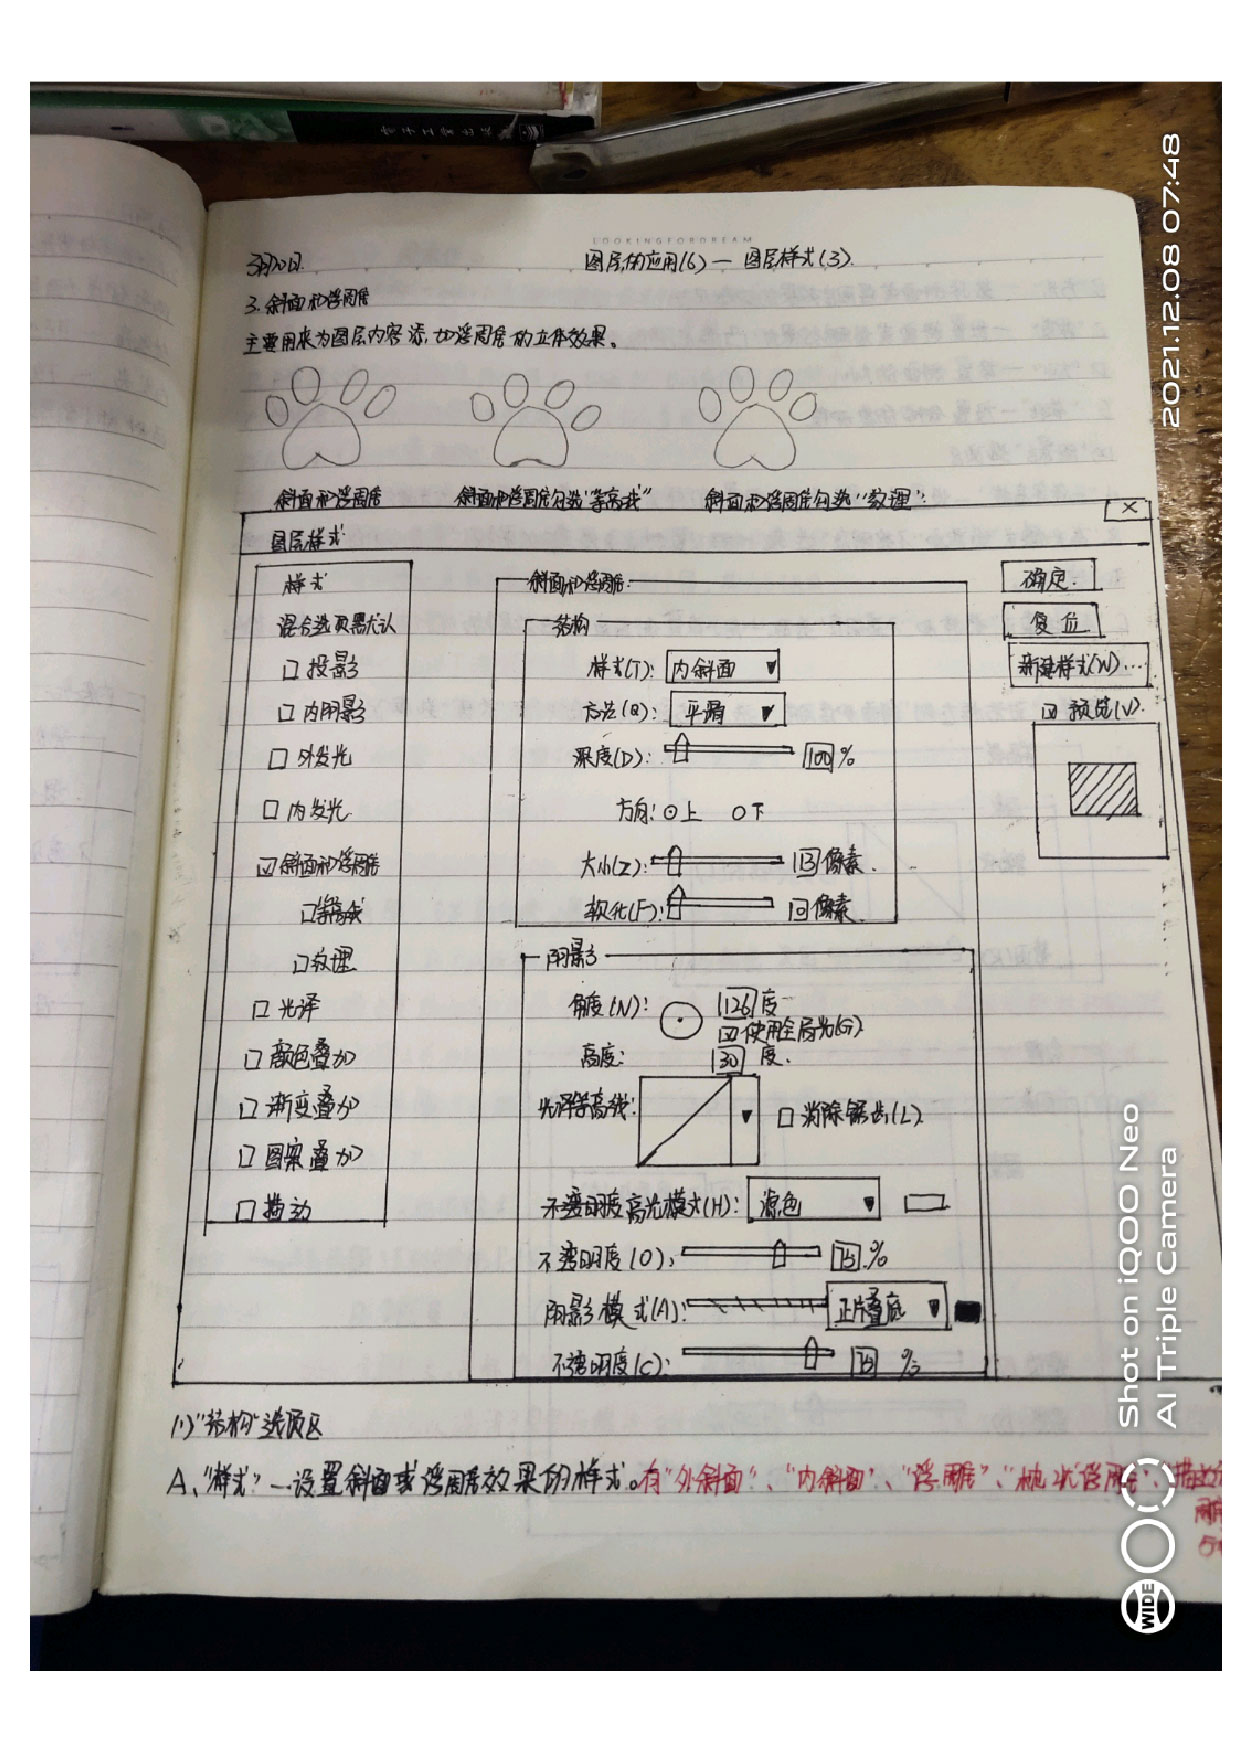 电子工业出版
LOOKINGFORDREAM
3月20日.
图层的应用(6) — 图层样式(3).
3.斜面和浮雕
主要用来为图层内容添加浮雕的立体效果。
斜面和浮雕
斜面和浮雕勾选"等高线"
斜面和浮雕勾选"纹理".
图层样式
×
样式
混合选项:默认
投影
内阴影
外发光
内发光
斜面和浮雕
等高线
纹理
光泽
颜色叠加
渐变叠加
图案叠加
描边
斜面和浮雕
结构
样式(T): 内斜面
方法(Q): 平滑
深度(D): 100 %
方向: 上 下
大小(Z): 像素.
软化(F): 像素.
阴影
角度(N): 126 度
使用全局光(G)
高度: 30 度.
光泽等高线: 消除锯齿(L)
不透明度高光模式(H): 滤色
不透明度(O): 75 %
阴影模式(A): 正片叠底
不透明度(C): 75 %
确定.
复位
新建样式(W)...
预览(V).
(1)"结构"选项区
A、"样式" — 设置斜面或浮雕效果的样式。有"外斜面"、"内斜面"、"浮雕"、"枕状浮雕"、"描边
雕
2021.12.08 07:48
Shot on iQOO Neo
AI Triple Camera
WIDE